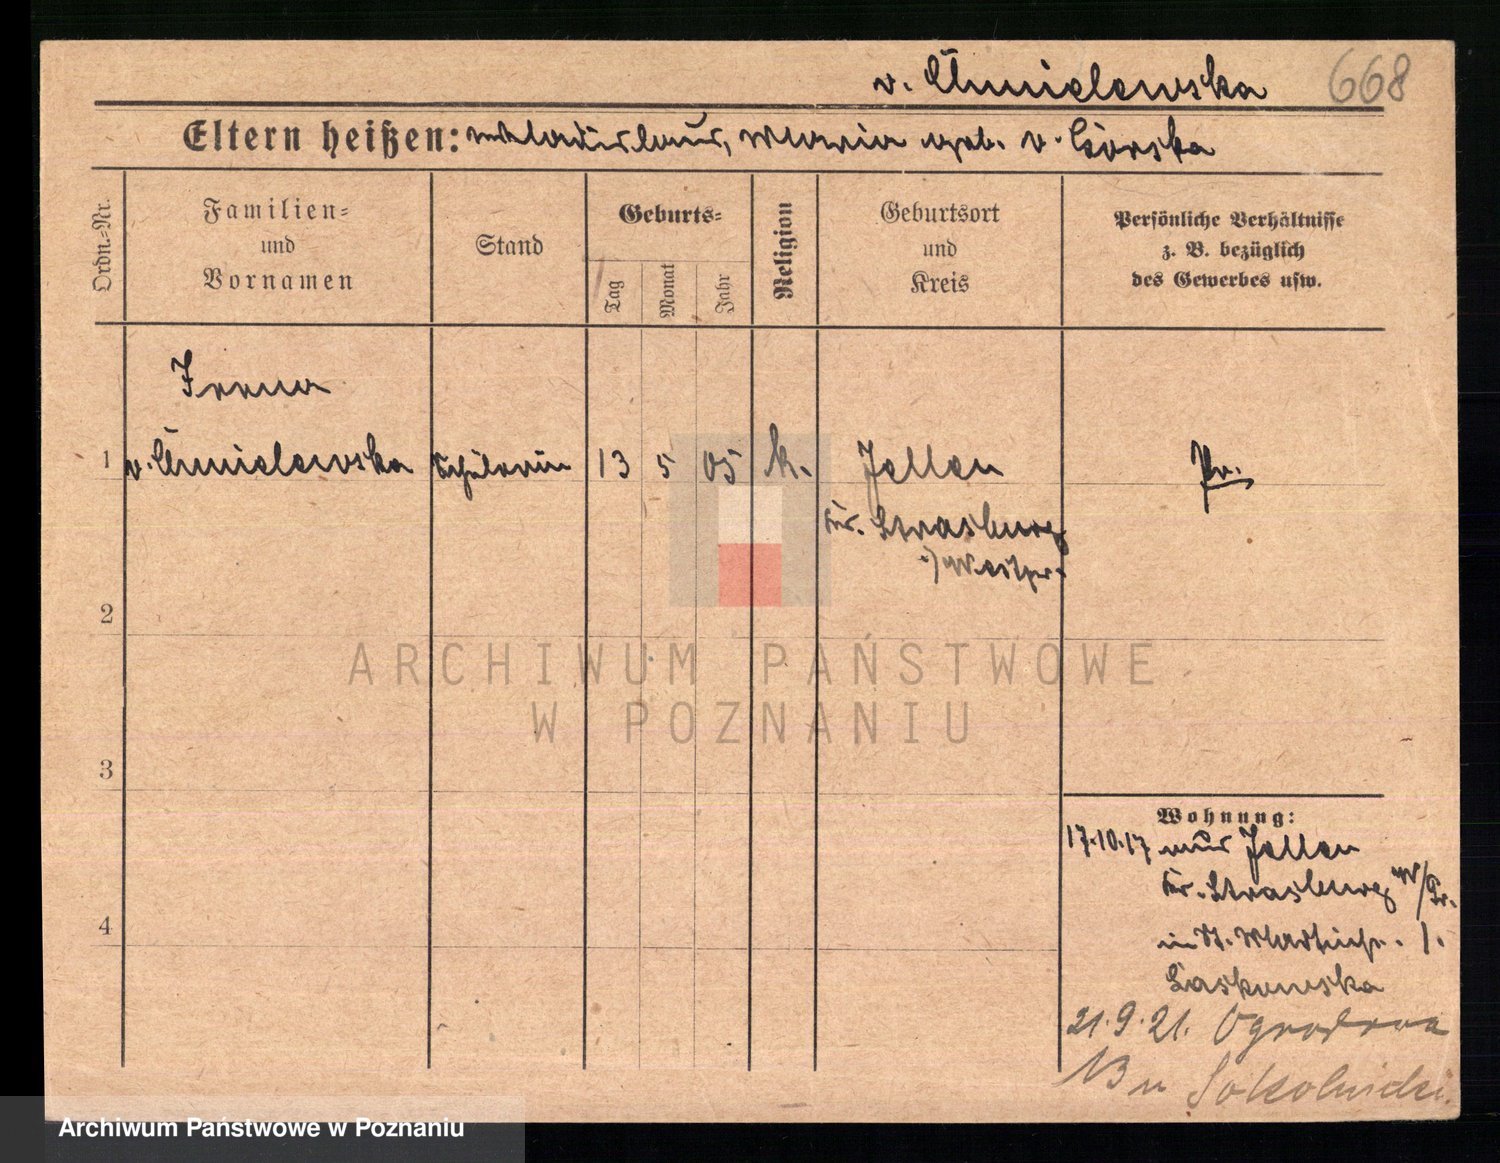 v. Chmielewska 668
Eltern heißen: Wladislaus, Maria geb. v. Górska
Ordn.-Nr.
Familien-
und
Vornamen
Stand
Geburts-
Tag
Monat
Jahr
Religion
Geburtsort
und
Kreis
Persönliche Verhältnisse
z. B. bezüglich
des Gewerbes usw.
Irena
1 v. Chmielewska Schülerin 13 5 05 k. Jellen Pr.
Kr. Strasburg
i/Westpr.
2
ARCHIWUM PAŃSTWOWE
W POZNANIU
3
Wohnung:
17.10.17 aus Jellen
Kr. Strasburg W/Pr.
4
in St. Martinstr. 1.
Laskowska
21.9.21. Ogrodowa
13 u Sokolnicki.
Archiwum Państwowe w Poznaniu